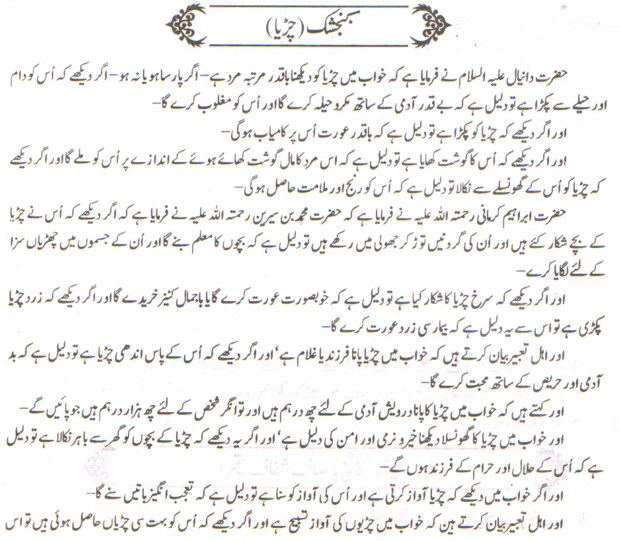 کنجشک (چڑیا)
حضرت دانیال علیہ السلام نے فرمایا ہے کہ خواب میں چڑیا کو دیکھنا باقدر مرتبہ مرد ہے- اگر پارسا ہو یا نہ ہو- اگر دیکھے کہ اُس کو دام
اور حیلے سے پکڑا ہے تو دلیل ہے کہ بے قدر آدمی کے ساتھ مکر و حیلہ کرے گا اور اُس کو مغلوب کرے گا-
اور اگر دیکھے کہ چڑیا کو پکڑا ہے تو دلیل ہے کہ باقدر عورت اُس پر کامیاب ہوگی-
اور اگر دیکھے کہ اُس کا گوشت کھایا ہے تو دلیل ہے کہ اس مرد کا مال گوشت کھائے ہوئے کے اندازے پر اُس کو ملے گا اور اگر دیکھے
کہ چڑیا کو اُس کے گھونسلے سے نکالا تو دلیل ہے کہ اُس کو رنج اور ملامت حاصل ہوگی-
حضرت ابراہیم کرمانی رحمتہ اللہ علیہ نے فرمایا ہے کہ حضرت محمد بن سیرین رحمتہ اللہ علیہ نے فرمایا ہے کہ اگر دیکھے کہ اُس نے چڑیا
کے بچے شکار کئے ہیں اور اُن کی گردنیں توڑ کر جھولی میں رکھے ہیں تو دلیل ہے کہ بچوں کا معلم بنے گا اور اُن کے جسموں میں چھڑیاں سزا
کے لئے لگایا کرے-
اور اگر دیکھے کہ سرخ چڑیا کا شکار کیا ہے تو دلیل ہے کہ خوبصورت عورت کرے گا یا باجمال کنیز خریدے گا اور اگر دیکھے کہ زرد چڑیا
پکڑی ہے تو اس سے یہ دلیل ہے کہ بیمار سی زرد عورت کرے گا-
اور اہل تعبیر بیان کرتے ہیں کہ خواب میں چڑیا پانا فرزند یا غلام ہے' اور اگر دیکھے کہ اُس کے پاس اندھی چڑیا ہے تو دلیل ہے کہ بد
آدمی اور حریص کے ساتھ محبت کرے گا-
اور کہتے ہیں کہ خواب میں چڑیا کا پانا درویش آدمی کے لئے چھ درہم ہیں اور توانگر شخص کے لئے چھ ہزار درہم ہیں جو پائیں گے-
اور خواب میں چڑیا کا گھونسلا دیکھنا خیر و نرمی اور امن کی دلیل ہے' اور اگر یہ دیکھے کہ چڑیا کے بچوں کو گھر سے باہر نکالا ہے تو دلیل
ہے کہ اُس کے حلال اور حرام کے فرزند ہوں گے-
اور اگر خواب میں دیکھے کہ چڑیا آواز کرتی ہے اور اُس کی آواز کو سنا ہے تو دلیل ہے کہ تعجب انگیز باتیں سنے گا-
اور اہل تعبیر بیان کرتے ہین کہ خواب میں چڑیوں کی آواز تسبیح ہے اور اگر دیکھے کہ اُس کو بہت سی چڑیاں حاصل ہوئی ہیں تو اس